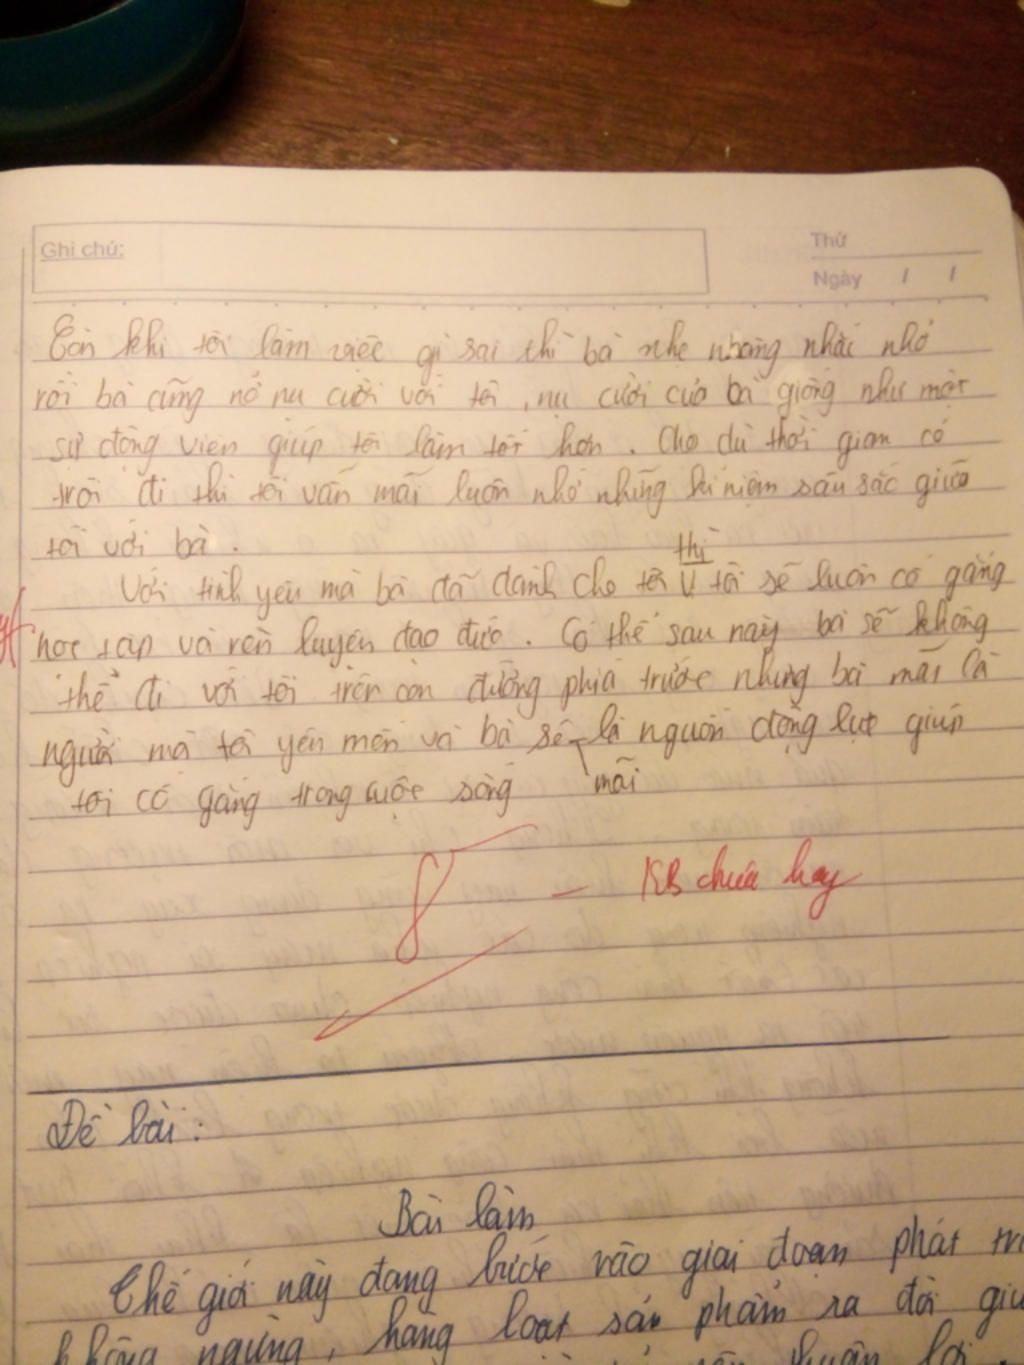 Ghi chú:
Thứ
Ngày / /
Còn khi tôi làm việc gì sai thì bà nhẹ nhàng nhắc nhở
rồi bà cũng nở nụ cười với tôi, nụ cười của bà giống như một
sự động viên giúp tôi làm tốt hơn. Cho dù thời gian có
trôi đi thì tôi vẫn mãi luôn nhớ những kỉ niệm sâu sắc giữa
tôi với bà.
thì
Với tình yêu mà bà đã dành cho tôi V tôi sẽ luôn cố gắng
học tập và rèn luyện đạo đức. Có thể sau này bà sẽ không
thể đi với tôi trên con đường phía trước nhưng bà mãi là
người mà tôi yêu mến và bà sẽ là nguồn động lực giúp
mãi
tôi cố gắng trong cuộc sống
8
- KB chưa hay
Đề bài:
Bài làm
Thế giới này đang bước vào giai đoạn phát
không ngừng, hàng loạt sản phẩm ra đời